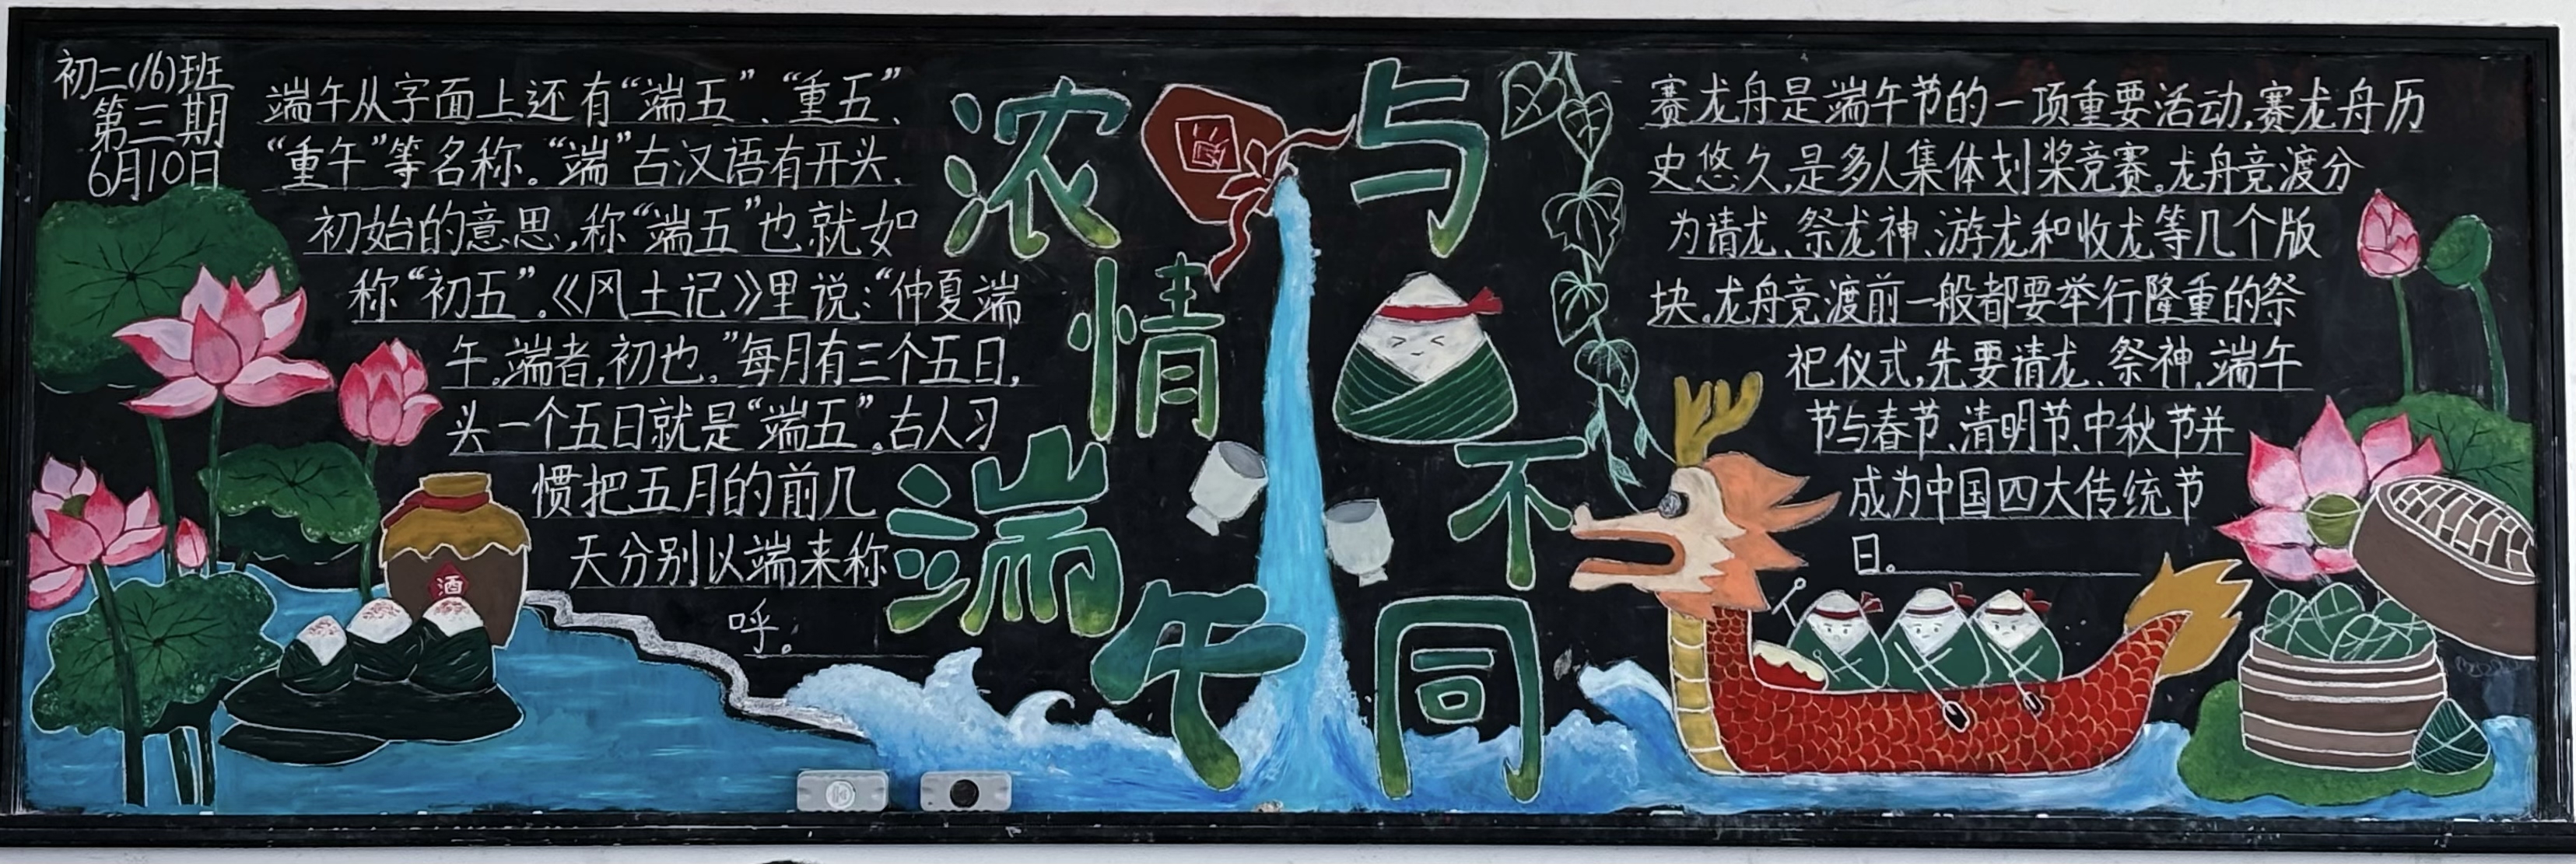 初二(16)班
第三期
6月10日
端午从字面上还有“端五”、“重五”、
“重午”等名称。“端”古汉语有开头、
初始的意思,称“端五”也就如
称“初五”。《风土记》里说:“仲夏端
午。端者,初也。”每月有三个五日,
头一个五日就是“端五”。古人习
惯把五月的前几
天分别以端来称
呼。
酒
浓情端午
与
不同
赛龙舟是端午节的一项重要活动,赛龙舟历
史悠久,是多人集体划桨竞赛。龙舟竞渡分
为请龙、祭龙神、游龙和收龙等几个版
块。龙舟竞渡前一般都要举行隆重的祭
祀仪式,先要请龙、祭神、端午
节与春节、清明节、中秋节并
成为中国四大传统节
日。